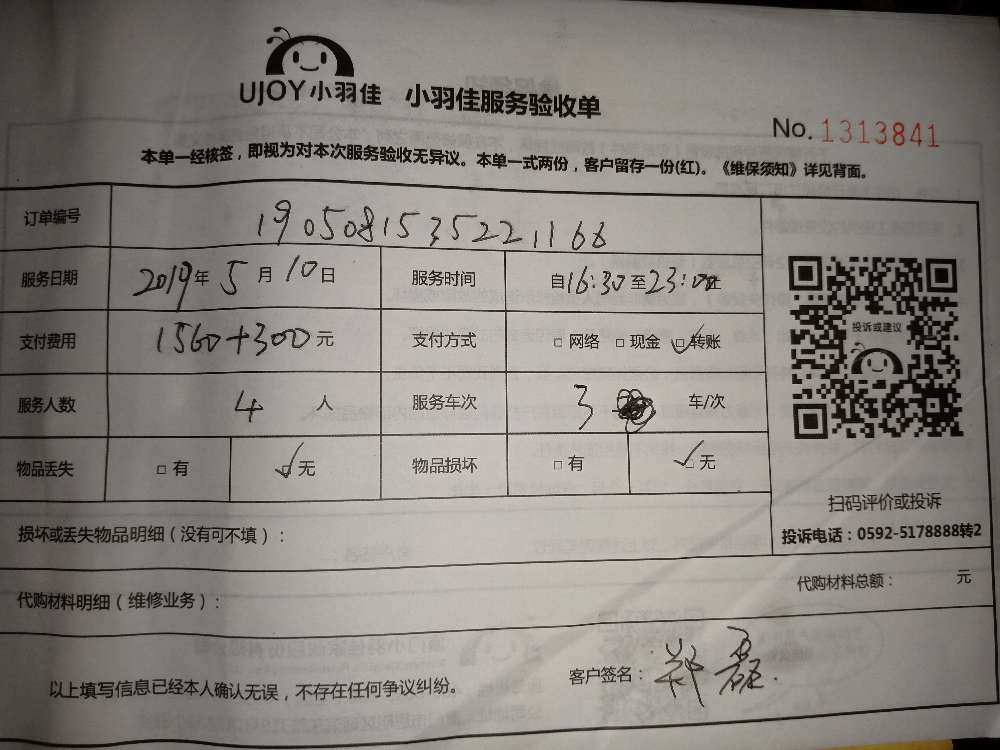 UJOY小羽佳 小羽佳服务验收单
No. 1313841
本单一经核签，即视为对本次服务验收无异议。本单一式两份，客户留存一份(红)。《维保须知》详见背面。
订单编号 1905081535221166
服务日期 2019年5月10日 服务时间 自16:30至23:00止
支付费用 1560+300元 支付方式 □ 网络 □ 现金 ☑ 转账
服务人数 4 人 服务车次 3 车/次
物品丢失 □ 有 ☑ 无 物品损坏 □ 有 ☑ 无
投诉或建议
扫码评价或投诉
投诉电话：0592-5178888转2
损坏或丢失物品明细（没有可不填）：
代购材料明细（维修业务）： 代购材料总额： 元
以上填写信息已经本人确认无误，不存在任何争议纠纷。 客户签名：